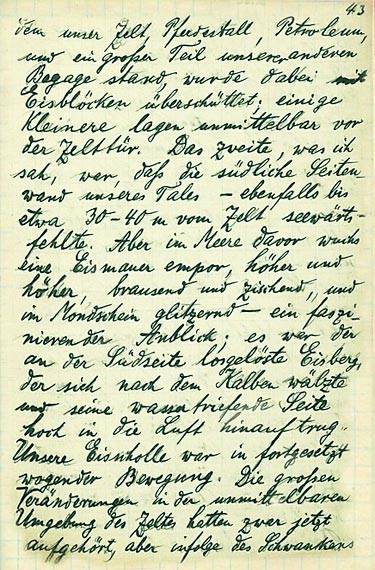 43
dem unser Zelt, Pferdestall, Petroleum,
und ein großer Teil unserer anderen
Bagage stand, wurde dabei mit
Eisblöcken überschüttet; einige
kleinere lagen unmittelbar vor
der Zelttür. Das zweite, was ich
sah, war, daß die südliche Seiten-
wand unseres Tales – ebenfalls bis
etwa 30–40 m vom Zelt seewärts –
fehlte. Aber im Meere davor wuchs
eine Eismauer empor, höher und
höher, brausend und zischend, und
im Mondschein glitzernd – ein faszi-
nierender Anblick; es war der
an der Südseite losgelöste Eisberg,
der sich nach dem Kalben wälzte
und seine wassertriefende Seite
hoch in die Luft hinauftrug.
Unsere Eisscholle war in fortgesetzt
wogender Bewegung. Die großen
Veränderungen in der unmittelbaren
Umgebung des Zeltes hatten zwar jetzt
aufgehört, aber infolge des Schwankens